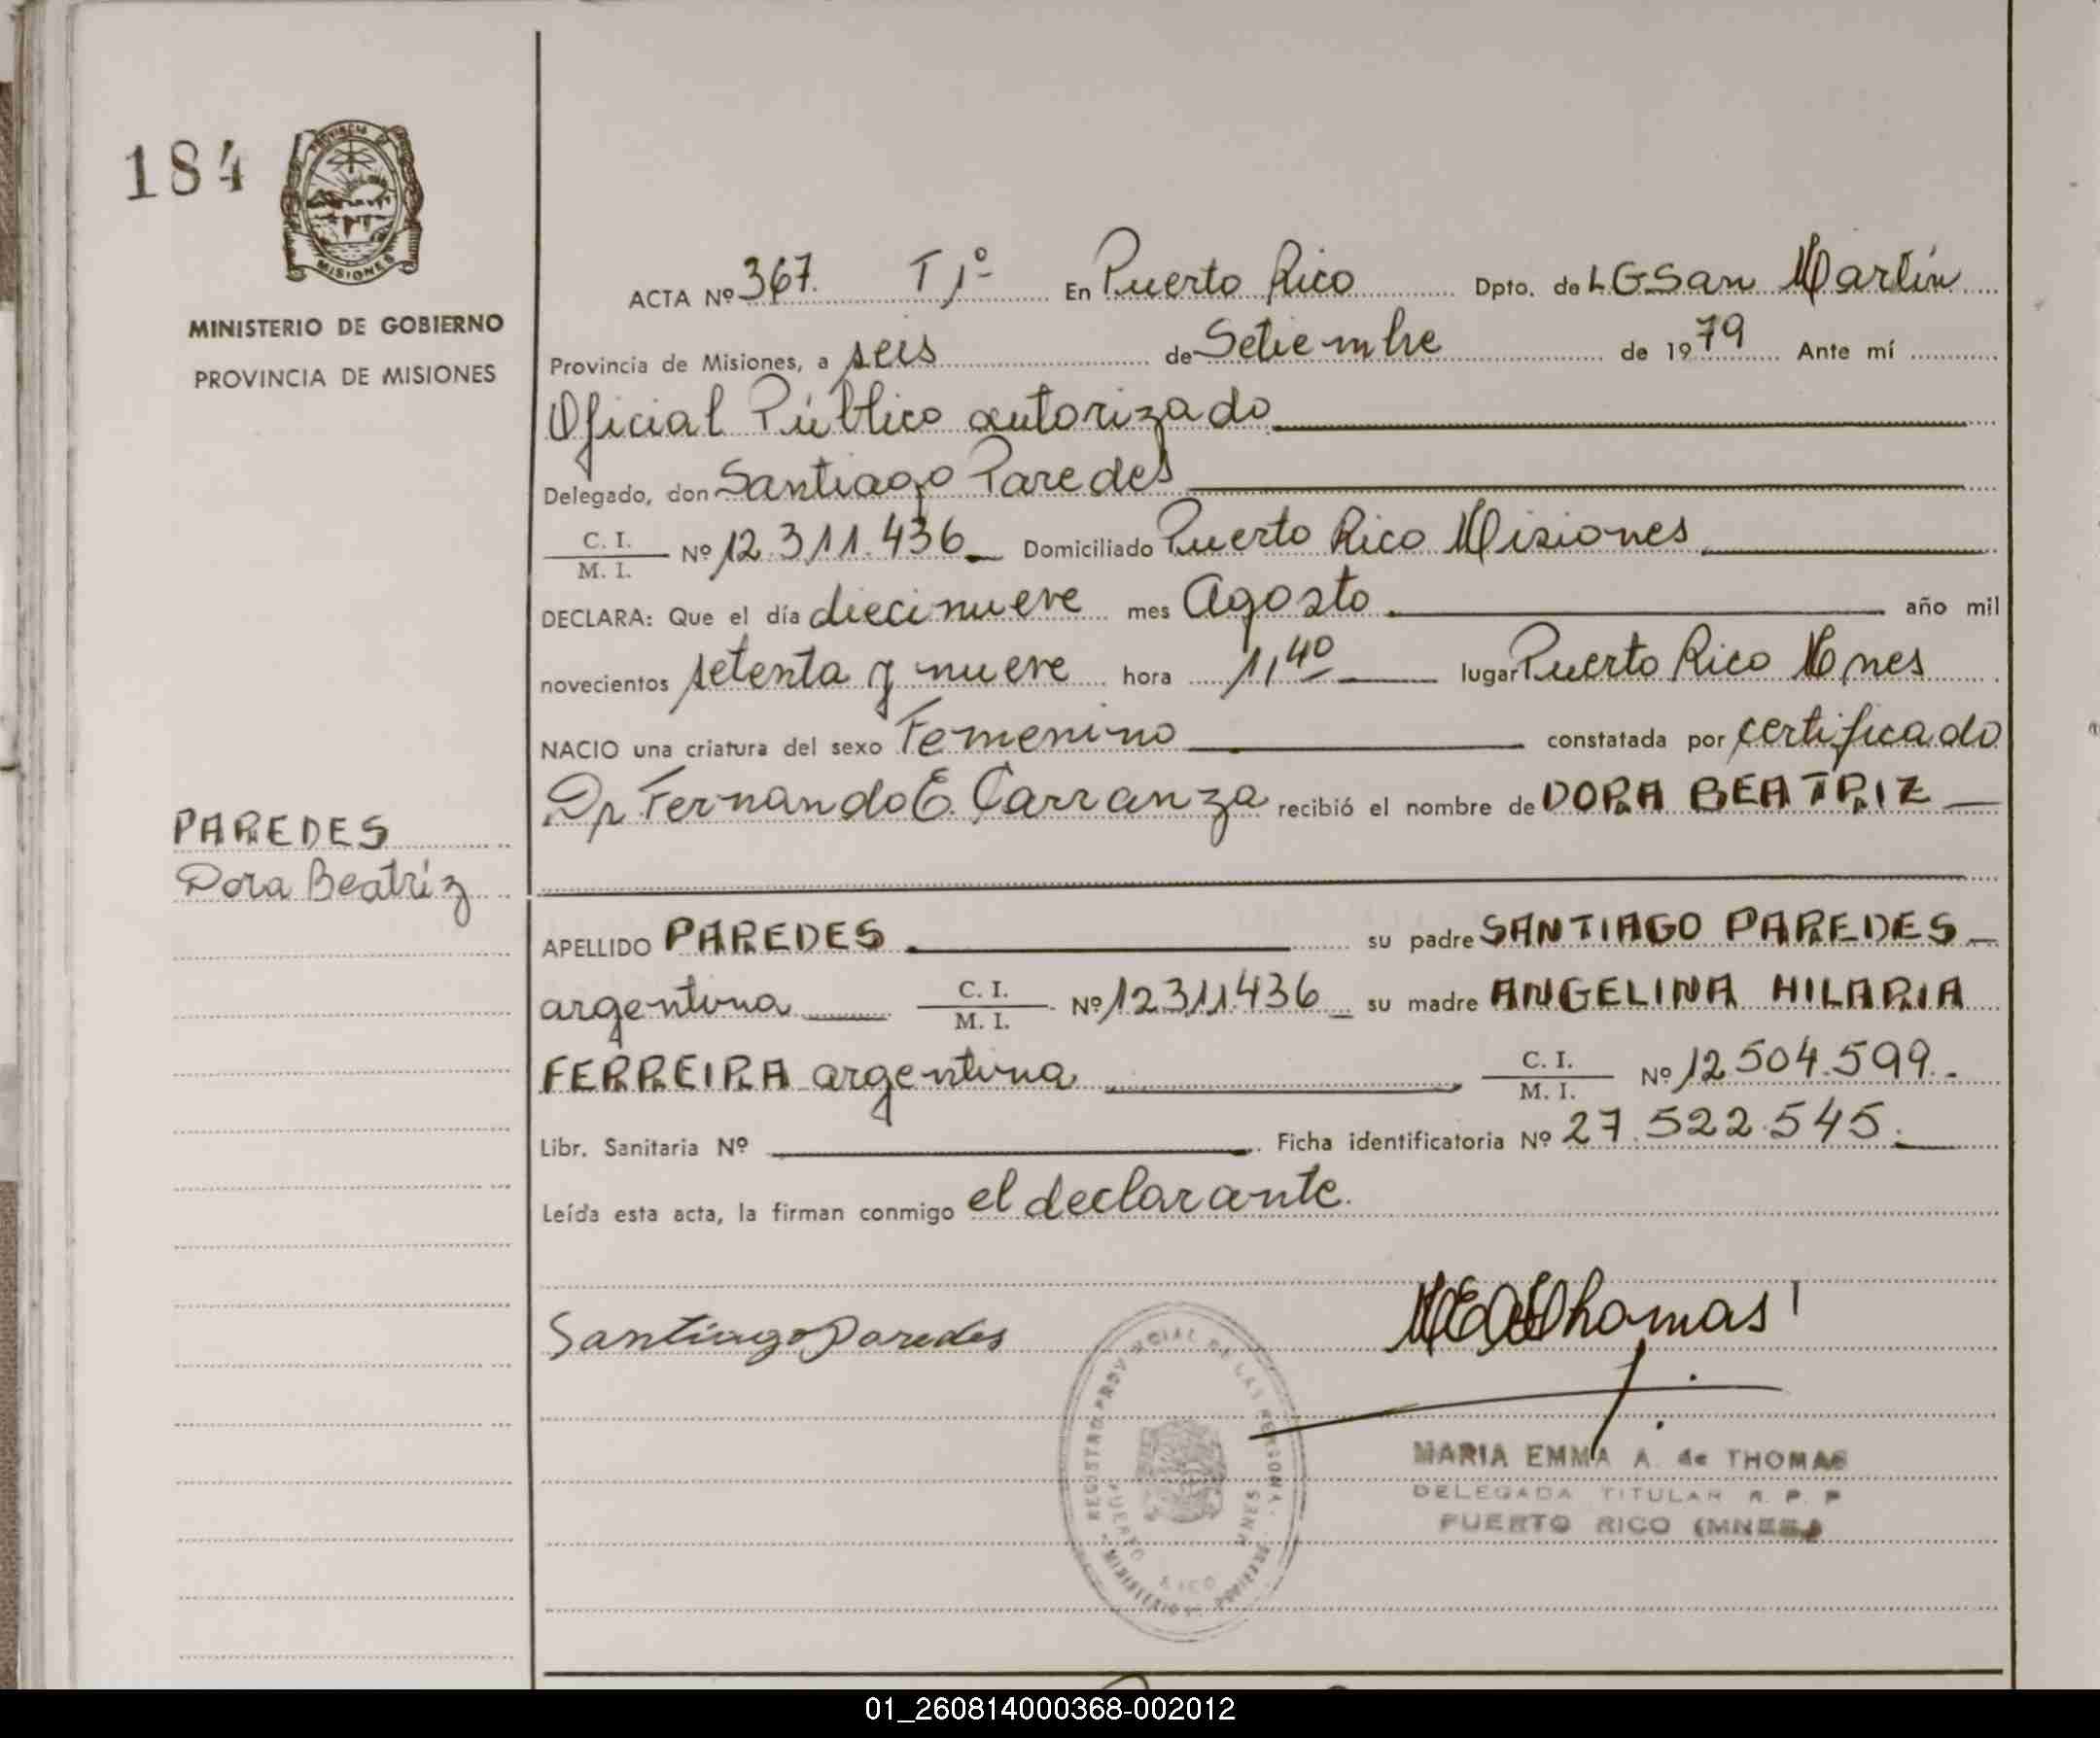 184
PROVINCIA DE
MISIONES
MINISTERIO DE GOBIERNO
PROVINCIA DE MISIONES
PAREDES
Dora Beatríz
ACTA Nº 367. T 1º En Puerto Rico Dpto. de L G San Martín
Provincia de Misiones, a seis de Setiembre de 1979 Ante mí
Oficial Público autorizado
Delegado, don Santiago Paredes
C. I.
M. I. Nº 12.311.436 Domiciliado Puerto Rico Misiones
DECLARA: Que el día diecinueve mes Agosto año mil
novecientos setenta y nueve hora 1,40 lugar Puerto Rico Mnes
NACIO una criatura del sexo Femenino constatada por certificado
Dr Fernando E. Carranza recibió el nombre de DORA BEATRIZ
APELLIDO PAREDES su padre SANTIAGO PAREDES
argentina C. I.
M. I. Nº 12.311.436 su madre ANGELINA HILARIA
FERREIRA argentina C. I.
M. I. Nº 12.504.599.
Libr. Sanitaria Nº Ficha identificatoria Nº 27.522.545.
Leída esta acta, la firman conmigo el declarante.
Santiago Paredes
Thomas
REGISTRO PROVINCIAL DE LAS PERSONAS
PUERTO RICO MNES
MARIA EMMA A. de THOMAS
DELEGADA TITULAR R. P. P
PUERTO RICO (MNES.)
01_260814000368-002012